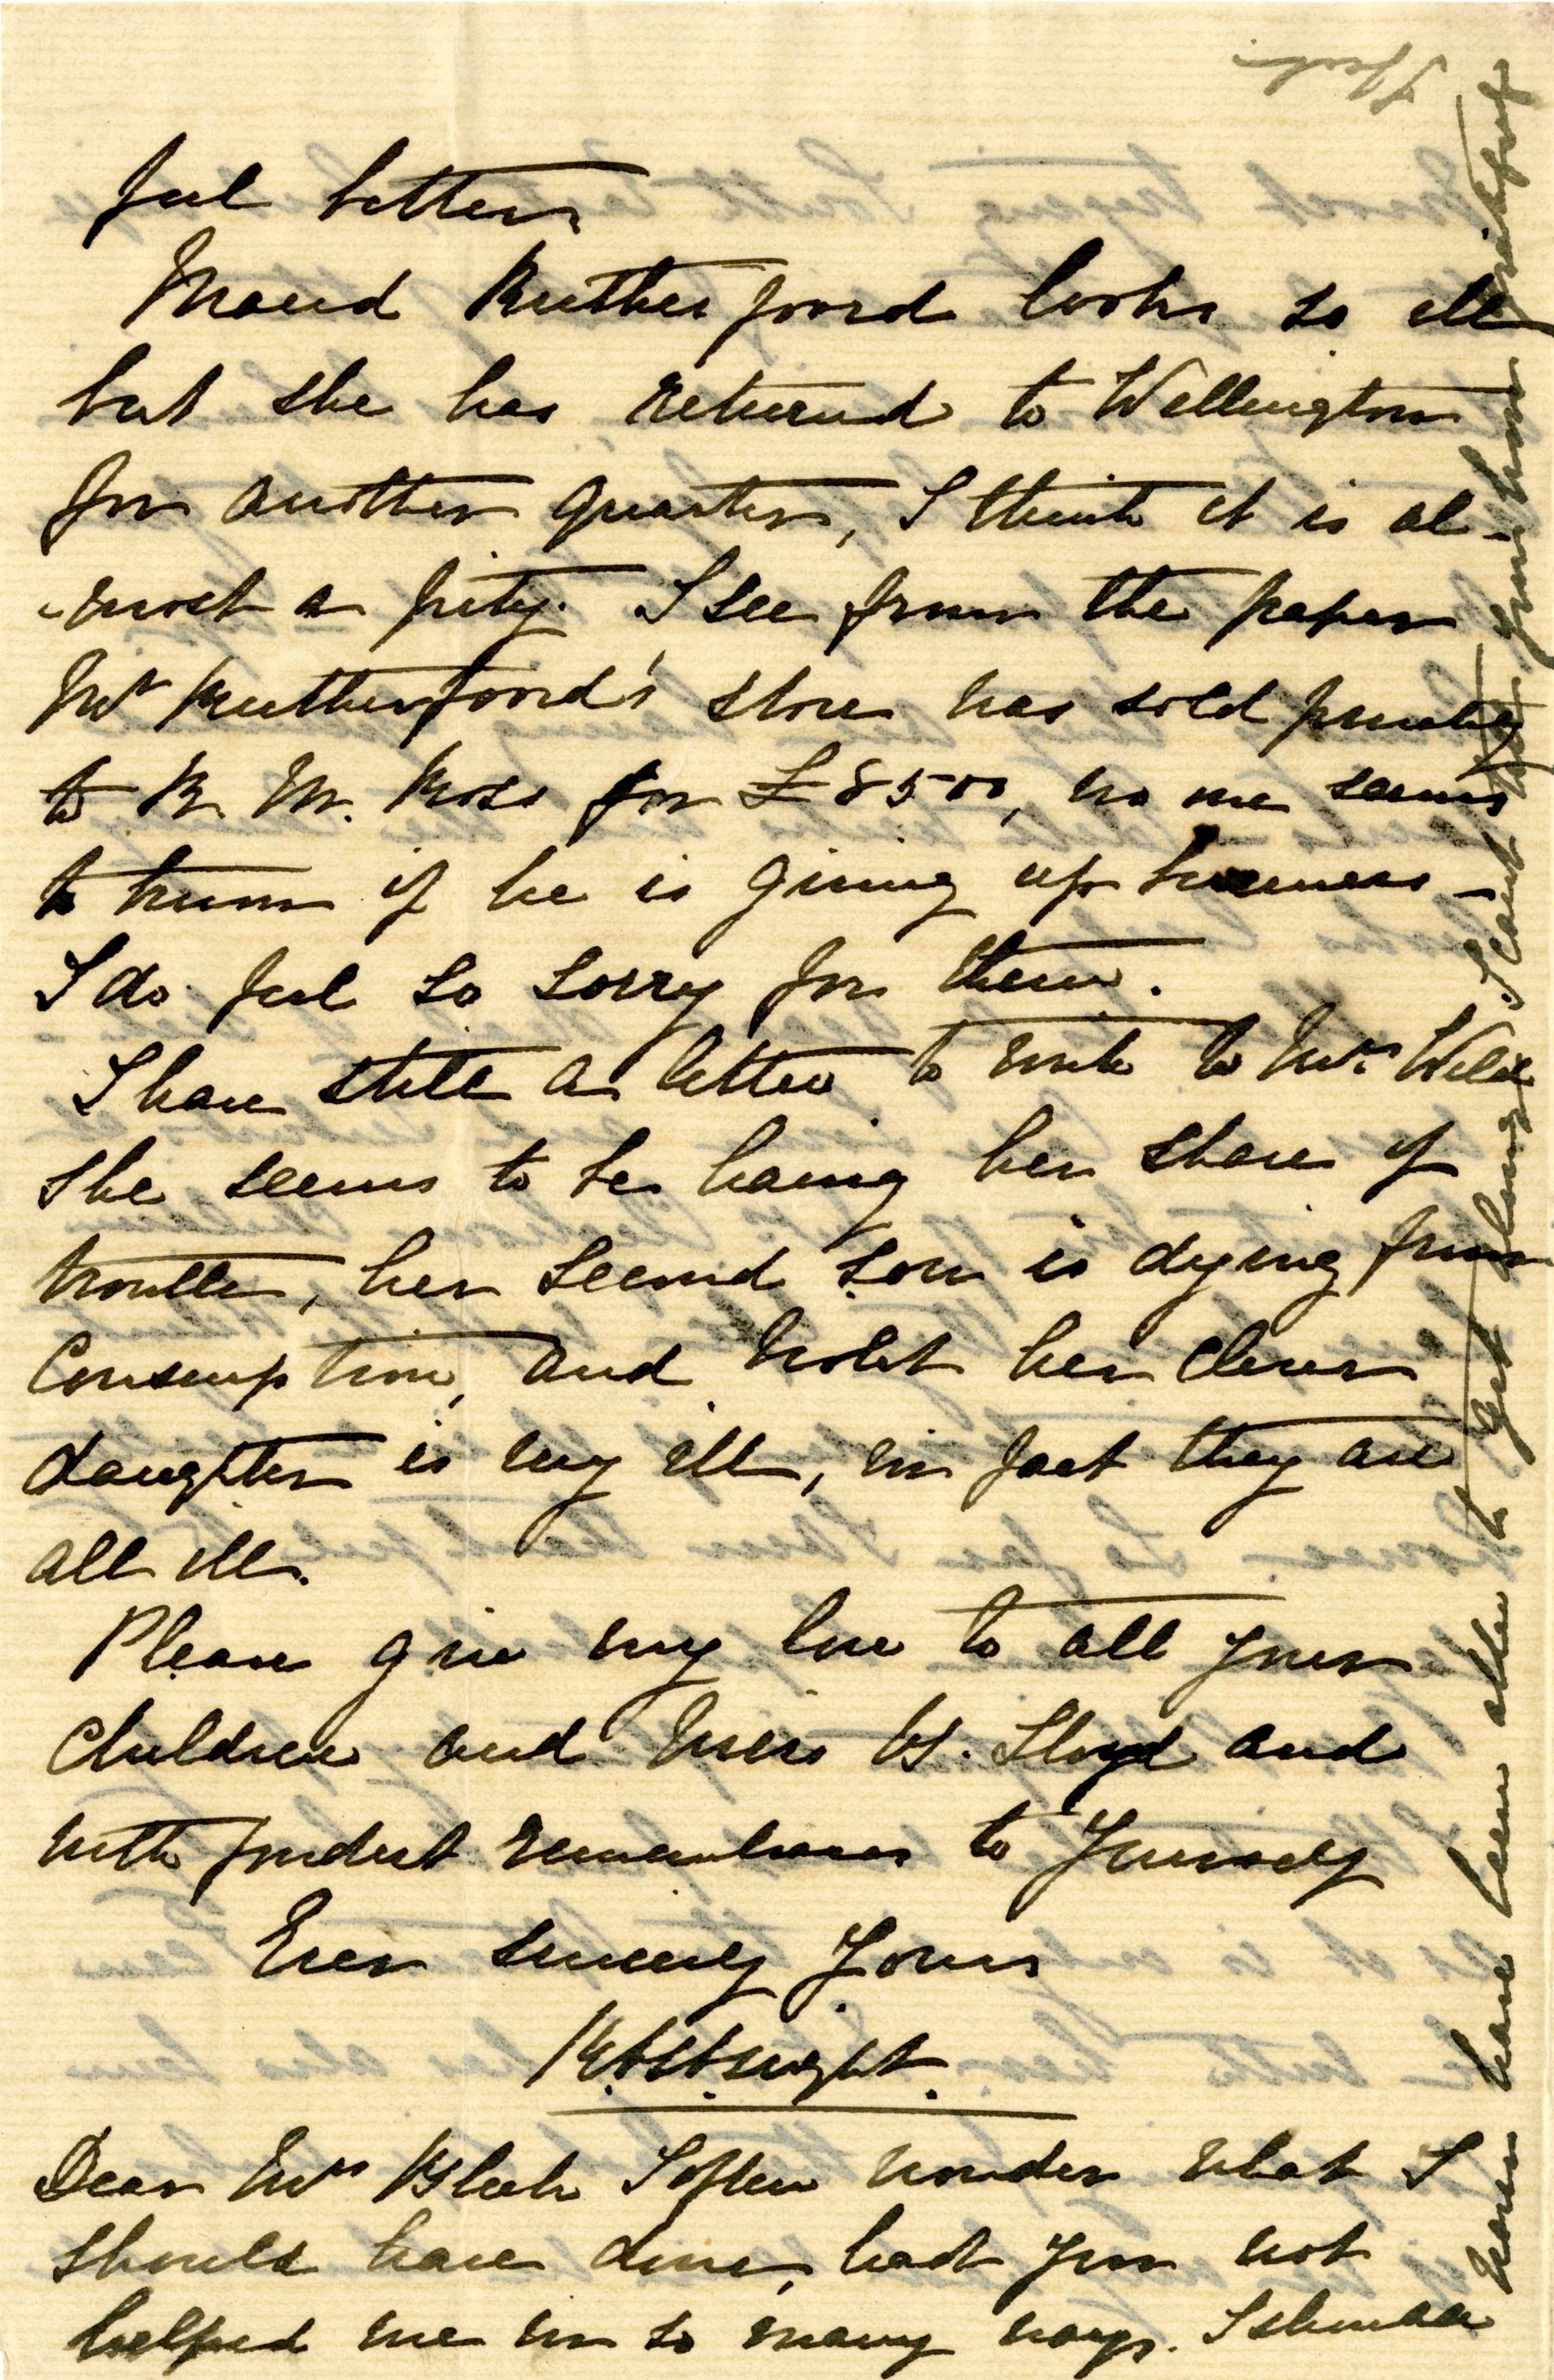 feel better
Maud Rutherfoord looks so ill
but she has returned to Wellington
for another quarter, I think it is al-
-most a pity. I see from the paper
Mr Rutherfoord's store was sold privately
to R. M. Ross for £8500, no one seems
to know if he is giving up business –
I do feel so sorry for them.
I have still a letter to write to Mrs
she seems to be having her share of
trouble, her second son is dying from
Consumption, and her clever
daughter is very ill, in fact they are
all ill.
Please give my love to all your
children and Miss Lloyd and
with fondest remembrances to yourself
Ever sincerely Yours

Dear Mrs Bleek I often wonder what I
should have done, had you not
helped me in so many ways. I should
never have been able to get along. I cant thank you